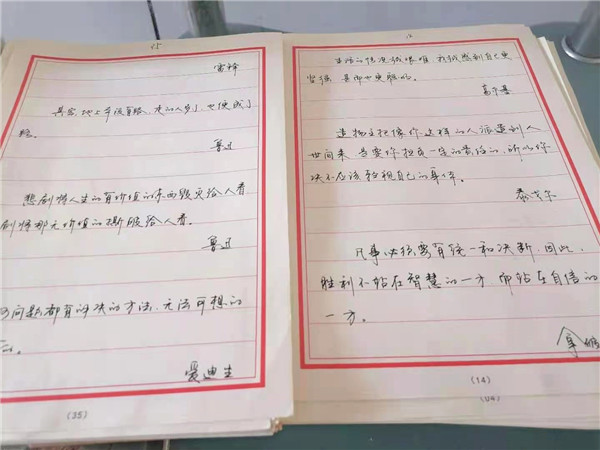 25
雷锋
其实地上本没有路,走的人多了,也便成了
路。
鲁迅
悲剧将人生的有价值的东西毁灭给人看
剧将那无价值的撕破给人看。
鲁迅
问题都有解决的方法,无法可想的
爱迪生
(35)
生活的情况越艰难,我越感到自己更
坚强,甚而也更聪明。
高尔基
造物主把像你这样的人派遣到人
世间来,是要你担负一定的责任的,所以你
决不应该轻视自己的身体。
泰戈尔
凡事必须要有统一和决断,因此,
胜利不站在智慧的一方,而站在自信的
一方。
拿破
(14)
(04)